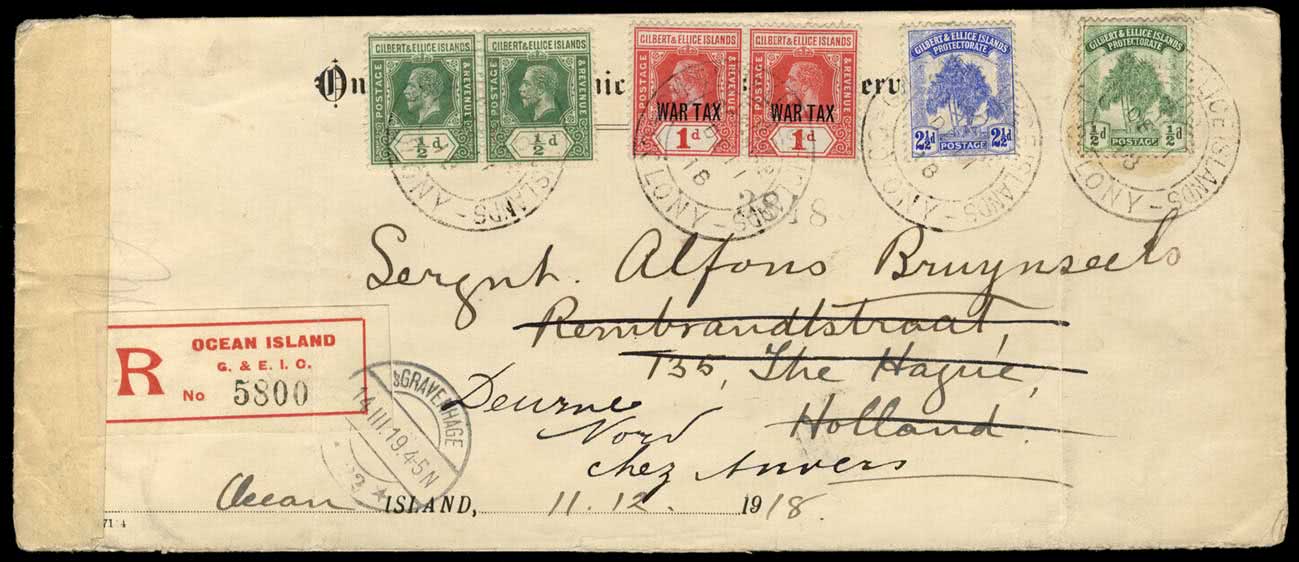 GILBERT & ELLICE ISLANDS
POSTAGE & REVENUE
½d
GILBERT & ELLICE ISLANDS
POSTAGE & REVENUE
½d
GILBERT & ELLICE ISLANDS
POSTAGE & REVENUE
WAR TAX
1d
GILBERT & ELLICE ISLANDS
POSTAGE & REVENUE
WAR TAX
1d
GILBERT & ELLICE ISLANDS
PROTECTORATE
2½d 2½d
POSTAGE
GILBERT & ELLICE ISLANDS
PROTECTORATE
½d ½d
POSTAGE
Sergnt. Alfons Bruynseels
Rembrandtstraat,
135, The Hague,
Holland.
Deurne
Nord
chez Anvers
R
OCEAN ISLAND
G. & E. I. C.
No 5800
'SGRAVENHAGE
14.III.19.4-5N
2
Ocean ISLAND, 11.12. 1918.